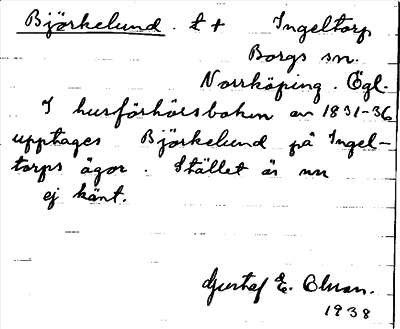 Björkelund. t + Ingeltorp
Borgs sn.
Norrköping. Ögl.
I husförhörsboken av 1831-36
upptages Björkelund på Ingel-
torps ägor. Stället är nu
ej känt.
Gustaf E. Olman.
1938